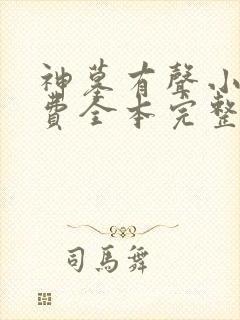 神墓有聲小
費全本完整
司馬舞